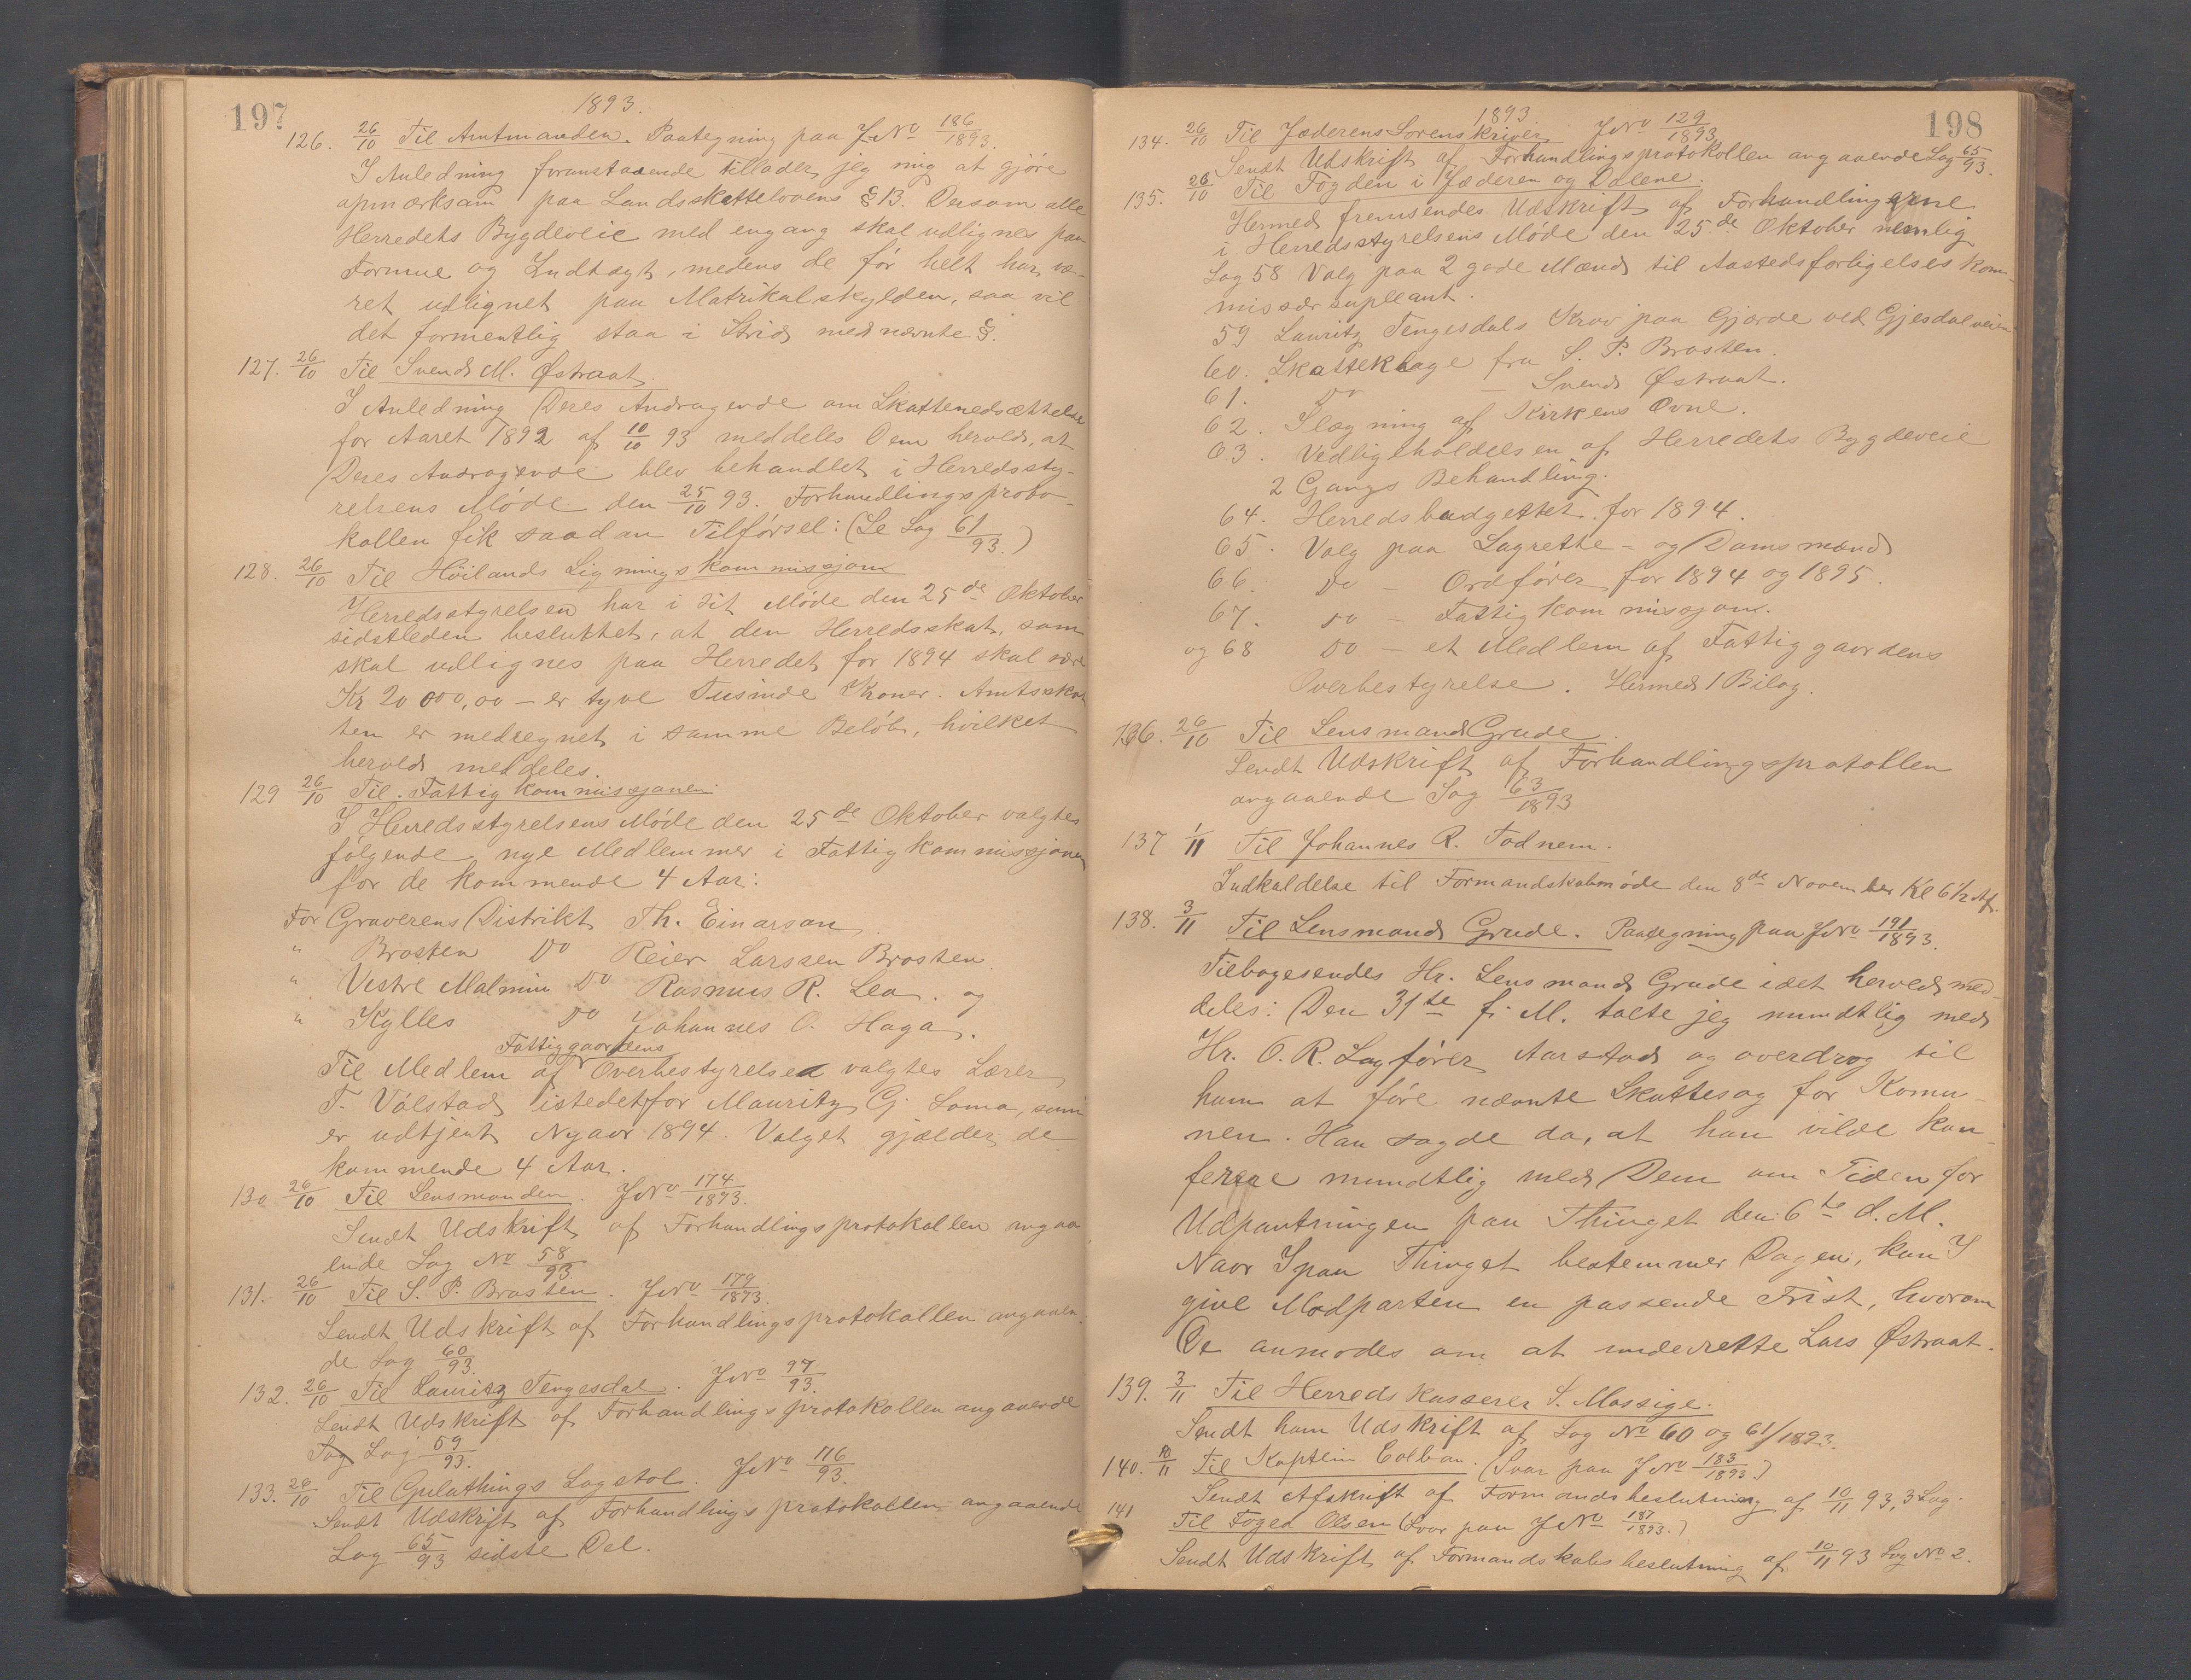 197
1893.
126. 26/10 Til Amtmanden. Paategning paa J.No 186/1893.
I Anledning foranstaaende tillader jeg mig at gjöre
opmærksam paa Landsskattelovens § 13. Dersom alle
Herredets Bygdeveie med engang skal udlignes paa
Formue og Indtægt, medens de för helt har væ-
ret udlignet paa Matrikulskylden, saa vil
det formentlig staa i Strid med nævnte §.
127. 26/10 Til Svend M. Østraat.
I Anledning Deres Andragende om Skattenedsættelse
for Aaret 1892 af 10/10 93 meddeles Dem herved, at
Deres Andragende blev behandlet i Herredssty-
relsens Möde den 25/10 93. Forhandlingsproto-
kollen fik saadan Tilförsel: (Se Sag 61/93.)
128. 26/10 Til Höilands Ligningskommissjon
Herredsstyrelsen har i sit Möde den 25de Oktober
sidstleden besluttet, at den Herredsskat, som
skal udlignes paa Herredet for 1894 skal være
Kr 20 000,00 – er tyve Tusinde Kroner. Amtsskat
ten er medregnet i samme Belöb, hvilket
herved meddeles.
129 26/10 Til Fattigkommissjonen
I Herredsstyrelsens Möde den 25de Oktober valgtes
fölgende nye Medlemmer i Fattigkommissjonen
for de kommende 4 Aar:
For Graverens Distrikt Th. Einarson
" Brosten Do Reier Larssen Brosten.
" Vestre Malmin Do Rasmus R. Lea. og
" Kylles Do Johannes O. Haga.
Fattiggaardens
Til Medlem af Overbestyrelsen valgtes Lærer
T. Völstad istedetfor Mauritz Gj. Soma, som
er udtjent Nyaar 1894. Valget gjælder de
kommende 4 Aar.
130 26/10 Til Lensmanden. JNo 174/1893.
Sendt Udskrift af Forhandlingsprotokollen angaa
ende Sag No 58/93
131. 26/10 Til S. P. Brosten. JNo 179/1893.
Sendt Udskrift af Forhandlingsprotokollen angaaen
de Sag 60/93.
132. 26/10 Til Lauritz Tengesdal. JNo 97/93.
Sendt Udskrift af Forhandlingsprotokollen angaaende
Sag Sag 59/93.
133. 26/10 Til Gulathings Lagstol. JNo 116/93.
Sendt Udskrift af Forhandlingsprotokollen angaaende
Sag 65/93 sidste Del.
198
1893
134. 26/10 Til Jæderens Sorenskriver JNo 129/1893
Sendt Udskrift af Forhandlingsprotokollen angaaende Sag 65/93.
135. 26/10 Til Fogden i Jæderen og Dalene.
Hermed fremsendes Udskrift af Forhandlingerne
i Herredsstyrelsens Möde den 25de Oktober nemlig
Sag 58 Valg paa 2 gode Mænd til Aastedsforligelseskom-
missær supleant.
59 Lauritz Tengesdals Krav paa Gjærde ved Gjesdalveien
60. Skatteklage fra S. P. Brosten.
61. Do – Svend Østraat.
62. Ilægning af Kirkens Ovne.
63. Vedligeholdelsen af Herredets Bygdeveie
2 Gangs Behandling.
64. Herredsbudgettet for 1894.
65. Valg paa Lagrette- og Domsmænd
66. Do – Ordförer for 1894 og 1895.
67. Do – Fattigkommissjon.
og 68 Do – et Medlem af Fattiggaardens
Overbestyrelse. Hermed 1 Bilag.
136. 26/10 Til Lensmand Grude.
Sendt Udskrift af Forhandlingsprotokllen
angaaende Sag 63/1893
137 1/11 Til Johannes R. Todnem.
Indkaldelse til Formandskabsmöde den 8de November Kl 6 1/2 Af.
138. 3/11 Til Lensmand Grude. Paategning paa JNo 191/1893.
Tilbagesendes Hr. Lensmand Grude idet herved med-
deles: Den 31te f. M. talte jeg mundtlig med
Hr. O. R. Sagförer Aarstad og overdrog til
ham at före nævnte Skattesag for Komu-
nen. Han sagde da, at han vilde kon-
ferere mundtlig med Dem om Tiden for
Udpantningen paa Thinget den 6te d. M.
Naar I paa Thinget bestemmer Dagen, kan I
give Modparten en passende Frist, hvorom
De anmodes om at underrette Lars Østraat.
139. 3/11 Til Herredskasserer S. Mossige.
Sendt ham Udskrift af Sag No 60 og 61/1893.
140. 10/11 Til Kaptein Colban. (Svar paa JNo 183/1893.)
Sendt Afskrift af Formandsbeslutning af 10/11 93, 3 Sag.
141 Til Foged Olsen (Svar paa JNo 187/1893.)
Sendt Udskrift af Formandskabsbeslutning af 10/11 93 Sag No 2.